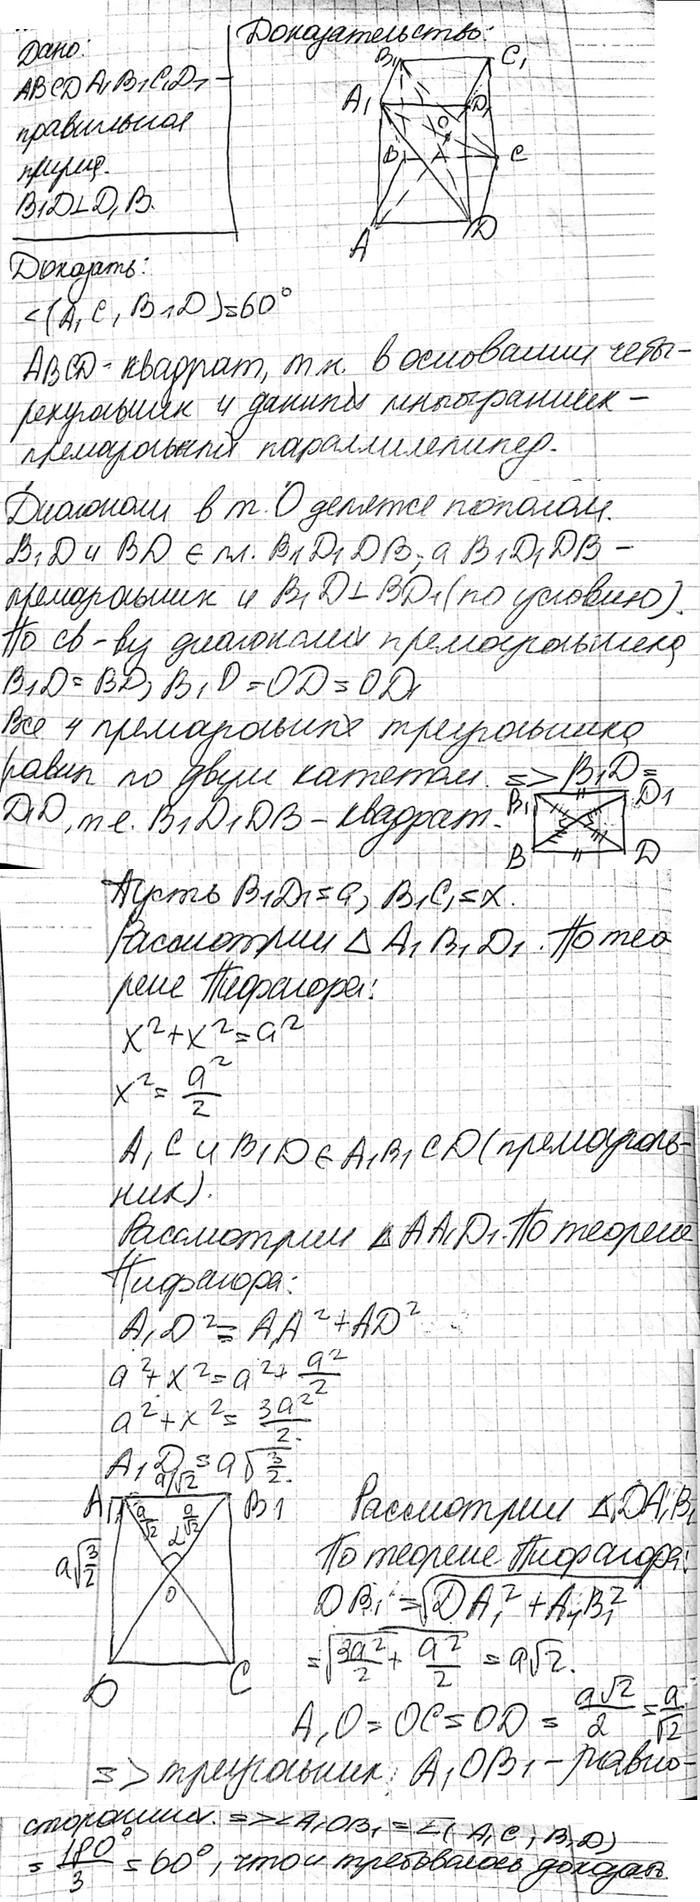 Дано:
ABCDA₁B₁C₁D₁ –
правильная
призма.
B₁D⊥D₁B.
Доказательство:
B₁
C₁
A₁
D₁
O
B
C
A
D
Доказать:
<(A₁C, B₁D)=60°
ABCD - квадрат, т.к. в основании четы-
рехугольник и данный многогранник –
прямоугольный параллелепипед.
Диагонали в т. O делятся пополам.
B₁D и BD ∈ пл. B₁D₁DB, а B₁D₁DB –
прямоугольник и B₁D⊥BD₁ (по условию).
По св-ву диагоналей прямоугольника
B₁D = BD, B₁O = OD = OD₁
Все 4 прямоугольных треугольника
равны по двум катетам. => B₁D =
D₁D, т.е. B₁D₁DB – квадрат.
B₁
D₁
B
D
Пусть B₁D₁=a, B₁C₁=x.
Рассмотрим △ A₁B₁D₁. По тео
реме Пифагора:
x²+x²=a²
x²= a²/2
A₁C и B₁D ∈ A₁B₁CD (прямоуголь-
ник).
Рассмотрим △AA₁D₁. По теореме
Пифагора:
A₁D²= A₁A²+AD²
a²+x²=a²+ a²/2
a²+x²= 3a²/2.
A₁D = a√3/2.
a/√2
A₁
a/√2
a/√2
B₁
2
a√3/2
O
D
C
Рассмотрим △DA₁B₁
По теореме Пифагора:
DB₁ = √DA₁²+A₁B₁²
= √3a²/2 + a²/2 = a√2.
A₁O = OC = OD = a√2/2 = a/√2
=> треугольник A₁OB₁ – равно-
сторонний. => <A₁OB₁ = <(A₁C, B₁D)
= 180°/3 = 60°, что и требовалось доказать.